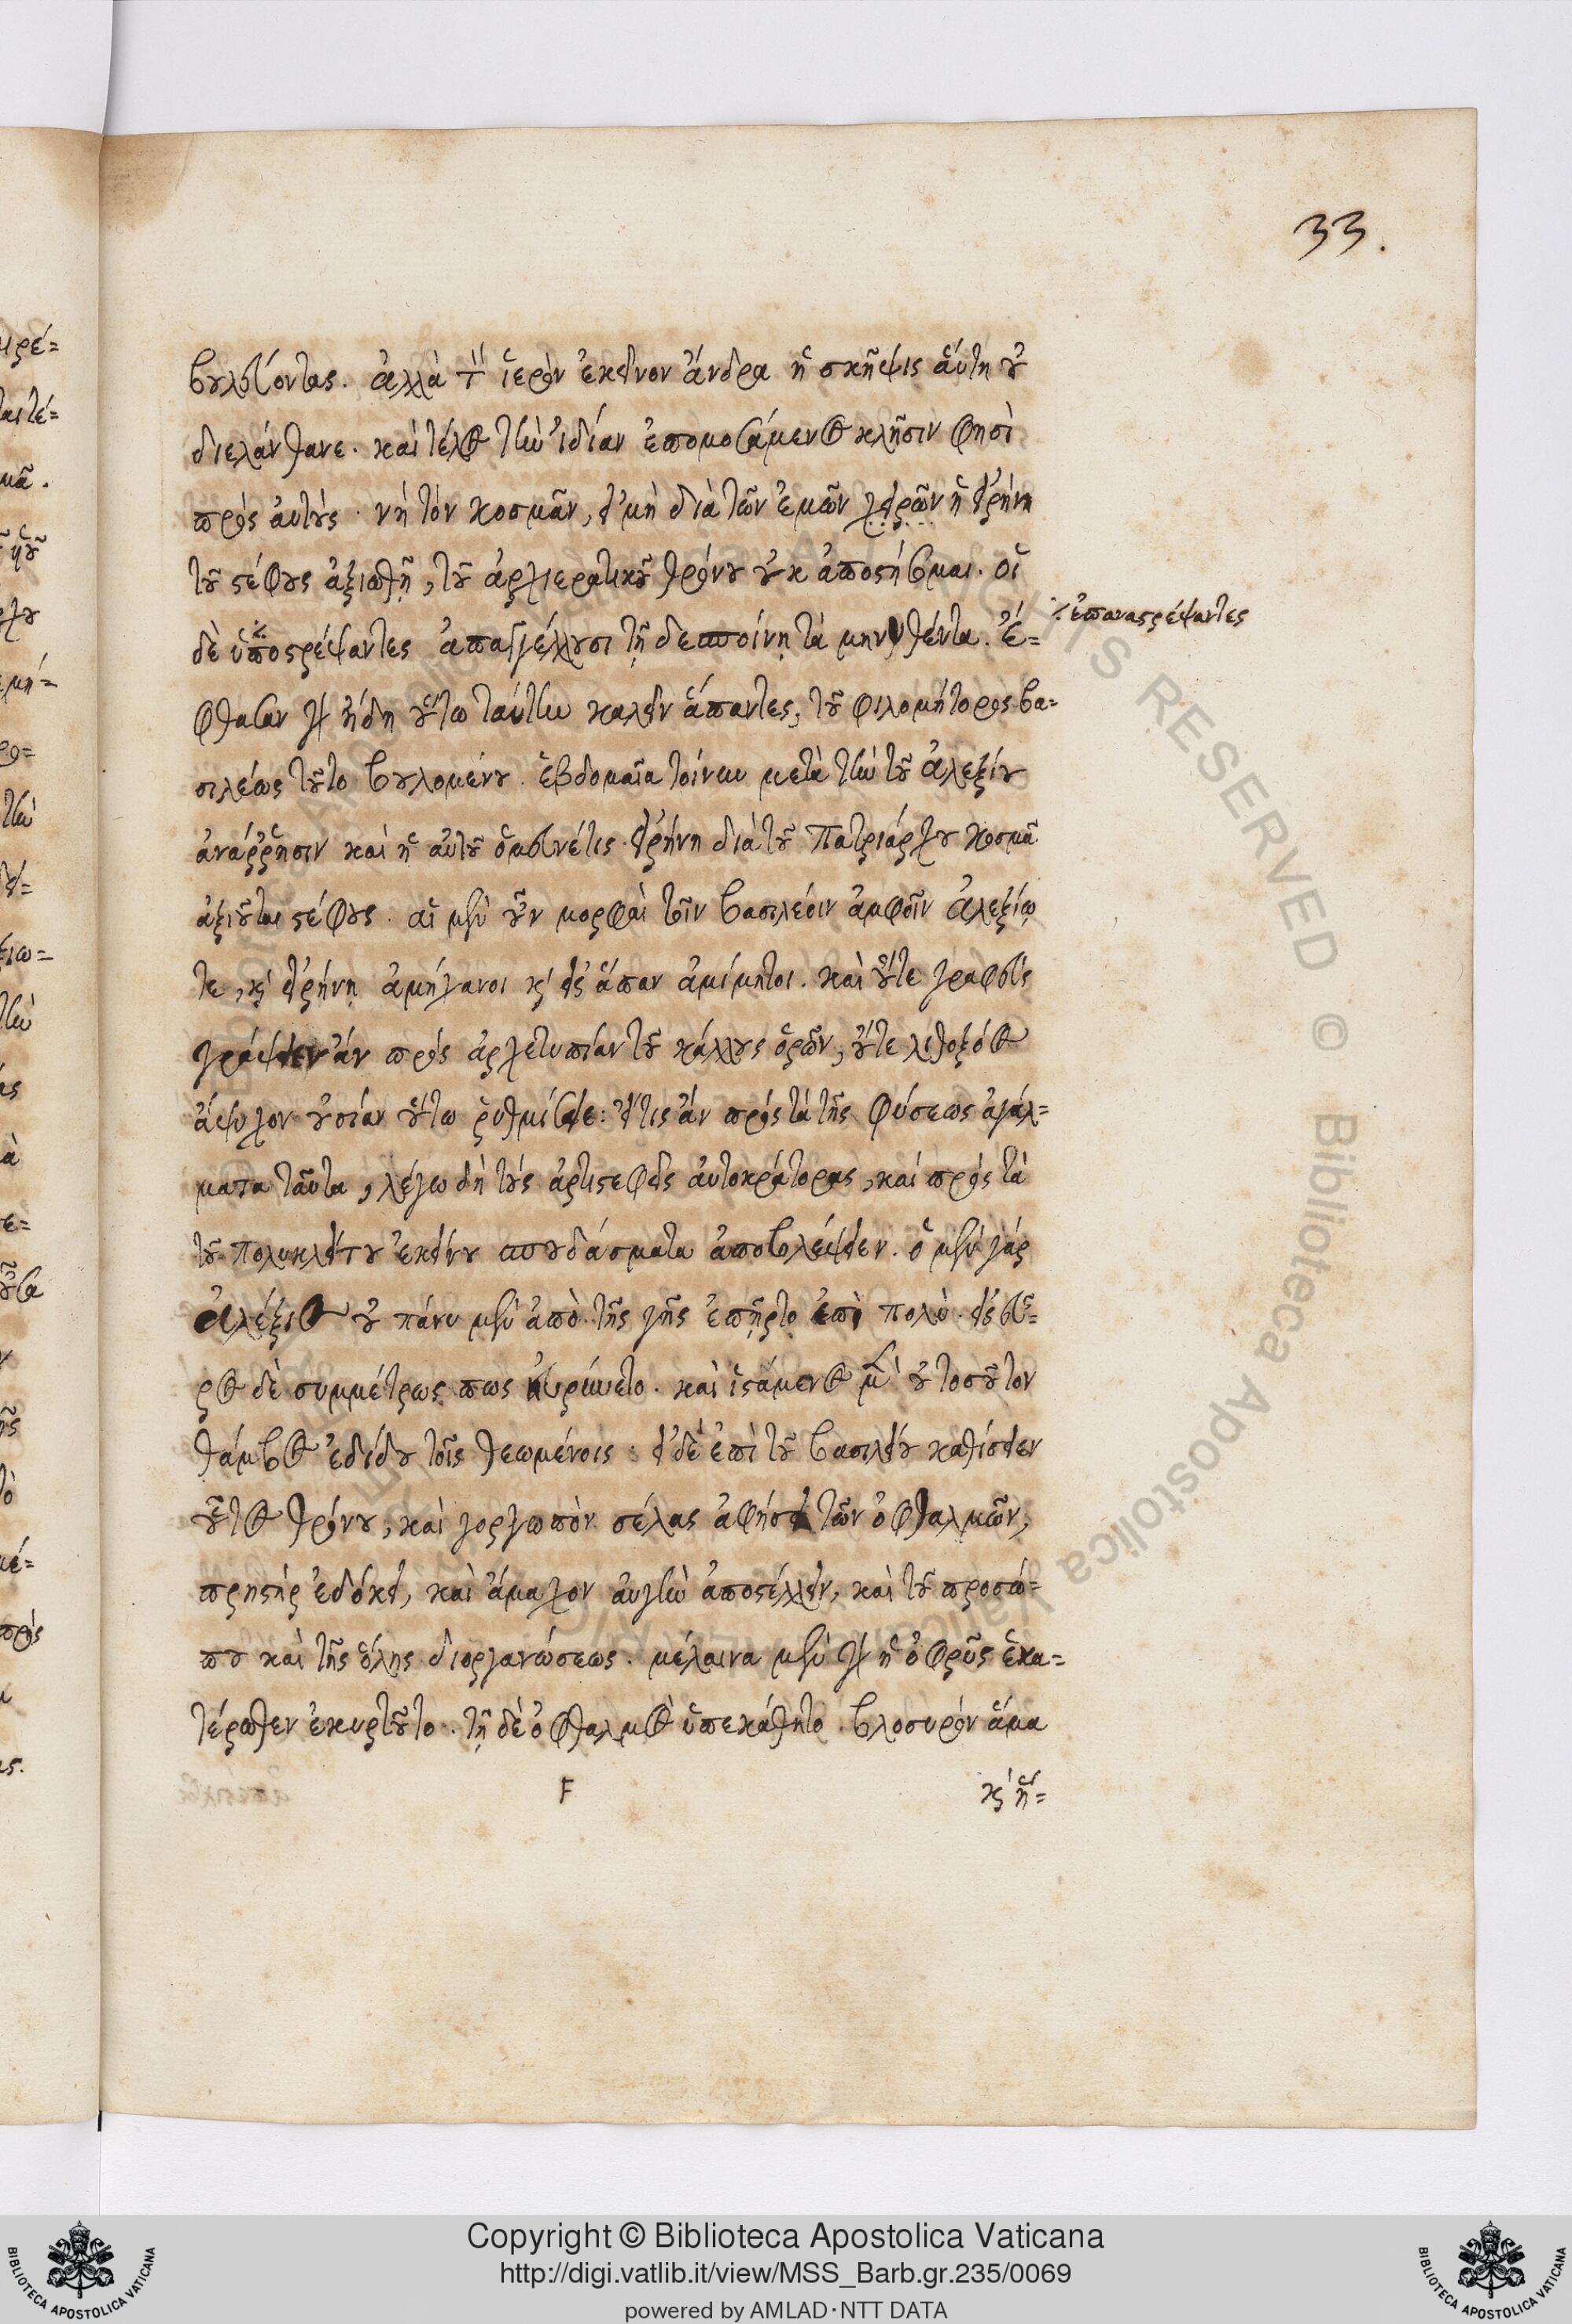 33.
βουλεύοντας. ἀλλὰ τὸν ἱερὸν ἐκεῖνον ἄνδρα ἡ σκῆψις αὕτη οὐ
διελάνθανε. καὶ τέλος τὴν ἰδίαν ἐπομοσάμενος κλῆσιν φησὶ
πρὸς αὐτούς. νὴ τὸν κοσμᾶν, εἰ μὴ διὰ τῶν ἐμῶν χειρῶν ἡ εἰρήνη
τοῦ στέφους ἀξιωθῇ, τοῦ ἀρχιερατικοῦ θρόνου οὐκ ἀποστήσομαι. οἱ
⁒ ἐπαναστρέψαντες
δὲ ὑποστρέψαντες ἀπαγγέλλουσι τῇ δεσποίνῃ τὰ μηνυθέντα. ἔ=
φθασαν γὰρ ἤδη οὕτω ταύτην καλεῖν ἅπαντες, τοῦ φιλομήτορος βα=
σιλέως τοῦτο βουλομένου. ἑβδομαῖα τοίνυν μετὰ τὴν τοῦ ἀλεξίου
ἀνάῤῥησιν καὶ ἡ αὐτοῦ ὁμευνέτις εἰρήνη διὰ τοῦ Πατριάρχου κοσμᾶ
ἀξιοῦται στέφους. αἱ μὲν οὖν μορφαὶ τοῖν βασιλέοιν ἀμφοῖν ἀλεξίῳ
τε, καὶ εἰρήνῃ ἀμήχανοι καὶ εἰς ἅπαν ἀμίμητοι. καὶ οὔτε γραφεὺς
γράψειεν ἂν πρὸς ἀρχετυπίαν τοῦ κάλλους ὁρῶν, οὔτε λιθοξόος
ἄψυχον οὐσίαν οὕτω ῥυθμίσειε: εἴ τις ἂν πρὸς τὰ τῆς φύσεως ἀγάλ=
ματα ταῦτα, λέγω δὴ τοὺς ἀρτιστεφεῖς αὐτοκράτορας, καὶ πρὸς τὰ
τοῦ πολυκλείτου ἐκείνου σπουδάσματα ἀποβλέψειεν. ὁ μὲν γὰρ
ἀλέξιος οὐ πάνυ μὲν ἀπὸ τῆς γῆς ἐπῆρτο ἐπὶ πολύ. εἰς εὖ=
ρος δὲ συμμέτρως πως εὐρύνετο. καὶ ἱστάμενος μὲν οὐ τοσοῦτον
θάμβος ἐδίδου τοῖς θεωμένοις: εἰ δὲ ἐπὶ τοῦ βασιλείου καθίσειεν
οὗτος θρόνου, καὶ γοργωπὸν σέλας ἀφήσει τῶν ὀφθαλμῶν,
πρηστὴρ ἐδόκει, καὶ ἄμαχον αὐγὴν ἀποστέλλειν, καὶ τοῦ προσώ=
που καὶ τῆς ὅλης διοργανώσεως. μέλαινα μὲν γὰρ ἡ ὀφρῦς ἑκα=
τέρωθεν ἐκυρτοῦτο. τῇ δὲ ὀφθαλμὸς ὑπεκάθητο. βλοσυρὸν ἅμα
F
καὶ ἥ=
Copyright © Biblioteca Apostolica Vaticana
http://digi.vatlib.it/view/MSS_Barb.gr.235/0069
powered by AMLAD·NTT DATA